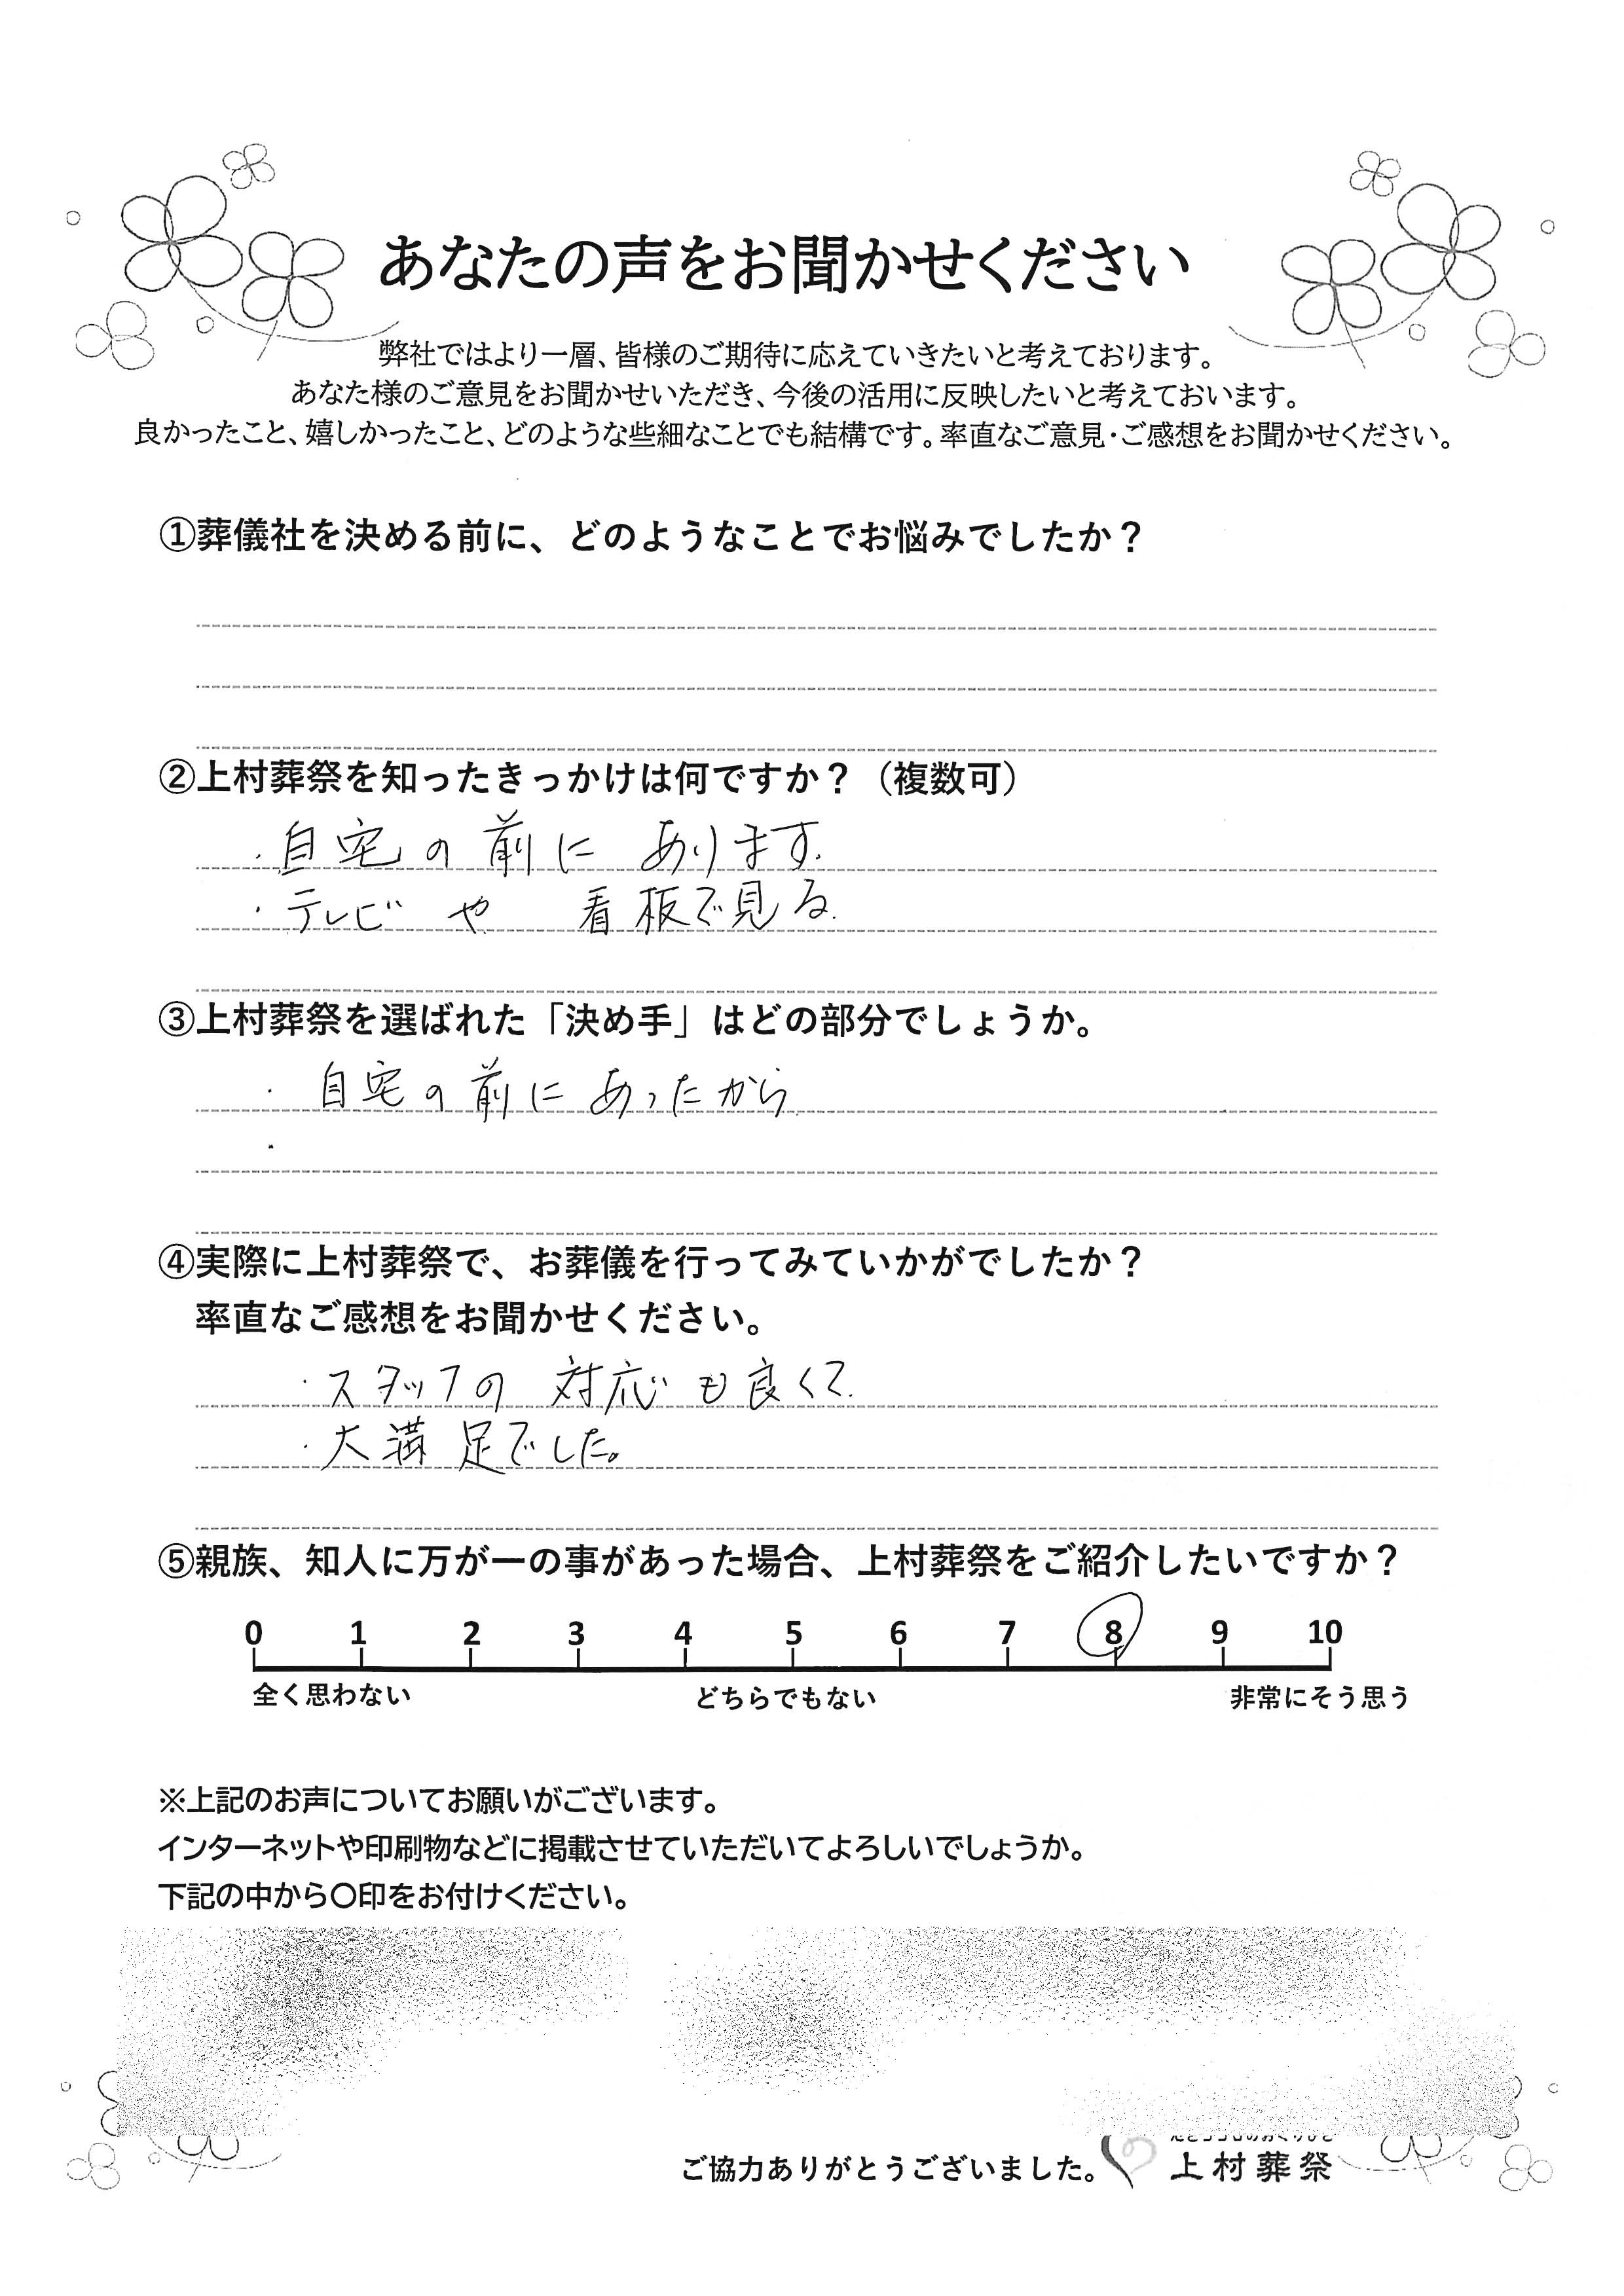 あなたの声をお聞かせください
弊社ではより一層、皆様のご期待に応えていきたいと考えております。
あなた様のご意見をお聞かせいただき、今後の活用に反映したいと考えておいます。
良かったこと、嬉しかったこと、どのような些細なことでも結構です。率直なご意見・ご感想をお聞かせください。
①葬儀社を決める前に、どのようなことでお悩みでしたか？
②上村葬祭を知ったきっかけは何ですか？（複数可）
・自宅の前にあります.
・テレビや 看板で見る.
③上村葬祭を選ばれた「決め手」はどの部分でしょうか。
・自宅の前にあったから
・
④実際に上村葬祭で、お葬儀を行ってみていかがでしたか？
率直なご感想をお聞かせください。
・スタッフの対応も良くて.
・大満足でした。
⑤親族、知人に万が一の事があった場合、上村葬祭をご紹介したいですか？
0 1 2 3 4 5 6 7 8 9 10
全く思わない どちらでもない 非常にそう思う
※上記のお声についてお願いがございます。
インターネットや印刷物などに掲載させていただいてよろしいでしょうか。
下記の中から〇印をお付けください。
ご協力ありがとうございました。 上村葬祭